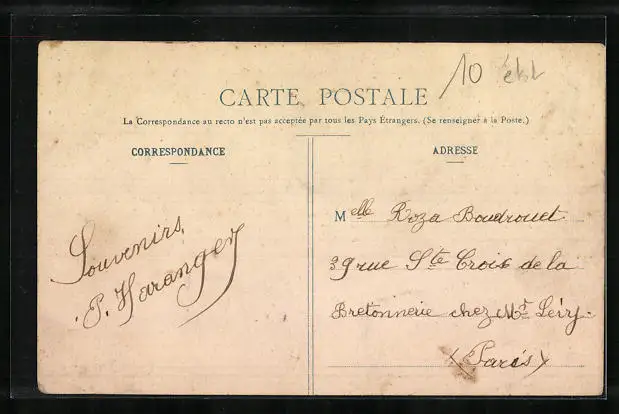 10
CARTE POSTALE
La Correspondance au recto n'est pas acceptée par tous les Pays Étrangers. (Se renseigner à la Poste.)
CORRESPONDANCE
Souvenirs,
P. Haranger
ADRESSE
Melle Roza Boudrouet
39 rue Ste Crois de la
Bretonnerie chez Mr Levy.
(Paris)